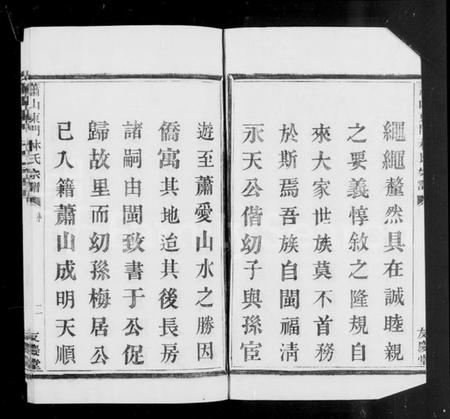 繩繩釐然具在誠睦親
之要義惇敘之隆規自
來大家世族莫不首務
於斯焉吾族自閩福清
永天公偕幼子與孫宦
友慶堂
遊至蕭愛山水之勝因
僑寓其地迨其後長房
諸嗣由閩致書于公促
歸故里而幼孫梅居公
已入籍蕭山成明天順
蕭山東門林氏宗譜
二
友慶堂